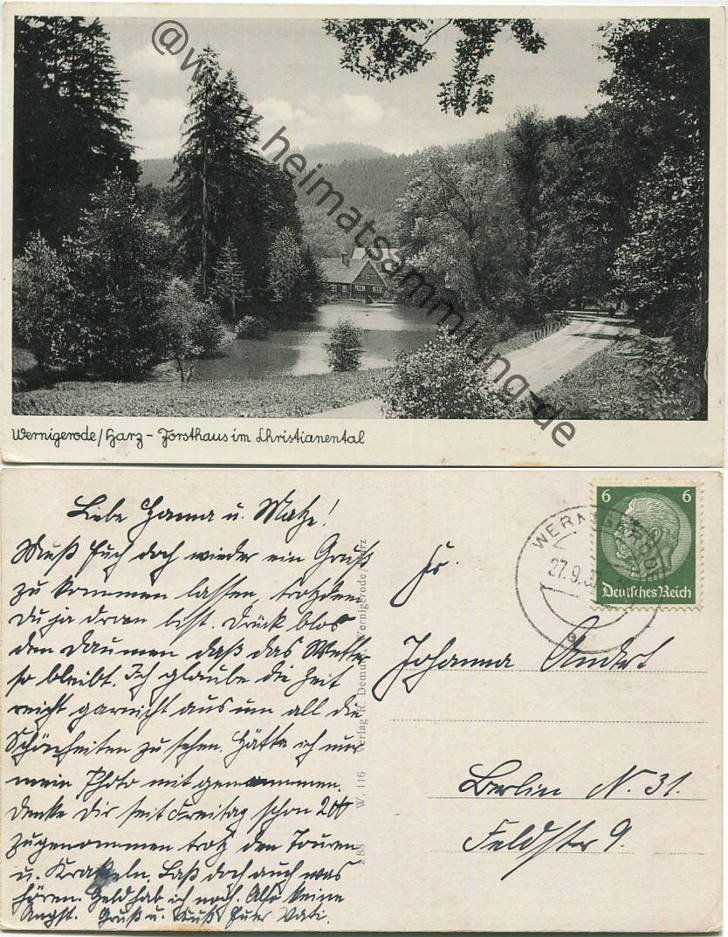 @www.heimatsammlung.de
Wernigerode/Harz - Forsthaus im Christianental
6 6
Deutsches Reich
WERNIGERODE
27.9.3
Liebe Hanna u. Matze!
Muß Euch doch wieder ein Gruß
zu kommen lassen, trotzdem
Du ja dran bist. Drück blos
den Daumen daß das Wetter
so bleibt. Ich glaube die Zeit
reicht garnicht aus um all die
Schönheiten zu sehen. Hätte ich nur
mein Photo mit genommen.
Denke Dir seit Freitag schon 2
zugenommen trotz den Touren
u. Kraxeln. Laß doch auch was
hören. Geld hab ich noch. Also keine
Angst. Gruß u. Kuß Euer Vati.
Verlag R. Demuth, Wernigerode, Harz
W. 116
Fr.
Johanna Andert
Berlin N. 31.
Feldstr 9.